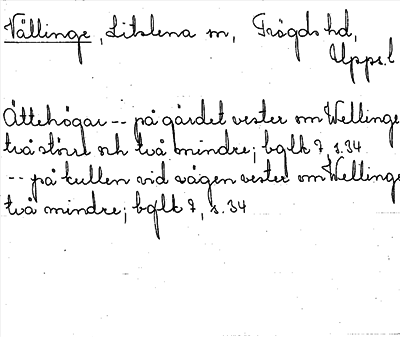 Vällinge, Litslena sn, Trögds hd,
Upps. l
Ättehögar -- på gärdet vester om Wellinge
två större och två mindre; bqlk 7 s. 34
-- på kullen vid vägen vester om Wellinge
två mindre; bqlk 7, s. 34